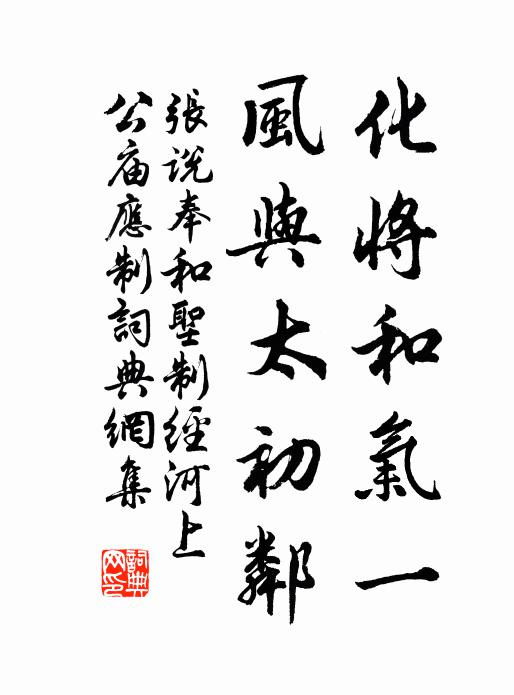 化將和氣一
風與太初鄰
張說奉和聖制經河上
公庙應制詞典網集
詞典
网印